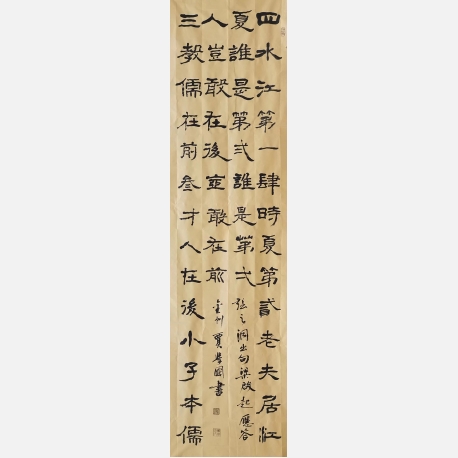 四水江第一肆時夏第貳老夫居江
夏誰是第弍誰是第弌
張之洞出句梁啟超應答
三教儒在前叁才人在後小子本儒
人豈敢在後豈敢在前
金州賈學國書